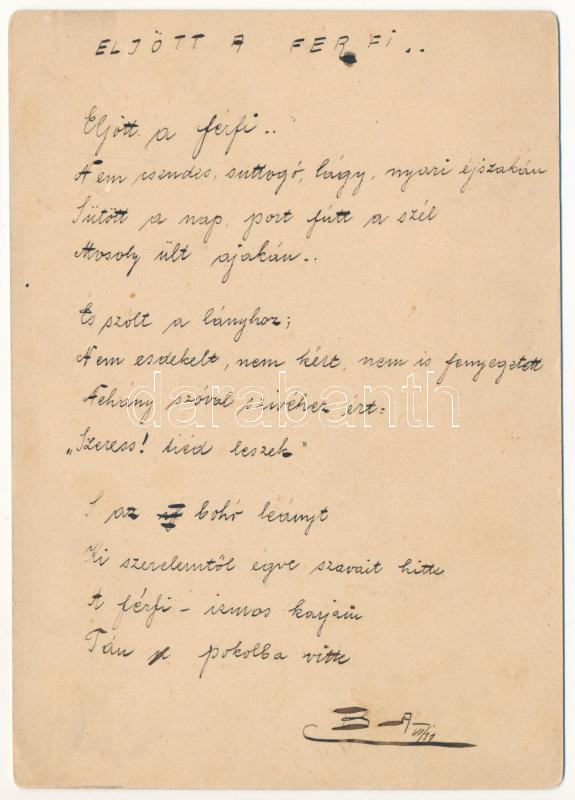 ELJÖTT A FÉRFI..
Eljött a férfi..
Nem csendes, suttogó, lágy, nyari éjszakán
Sütött a nap, port fútt a szél
Mosoly ült ajakán..
És szólt a lányhoz;
Nem esdekelt, nem kért, nem is fenyegetett
Nehány szóval szivéhez ért:
darabanth
„Szeress! tiéd leszek"
S az bohó leányt
Ki szerelemtől égve szavait hitte
A férfi - ismos karjain
Tán pokolba vitte
B-A